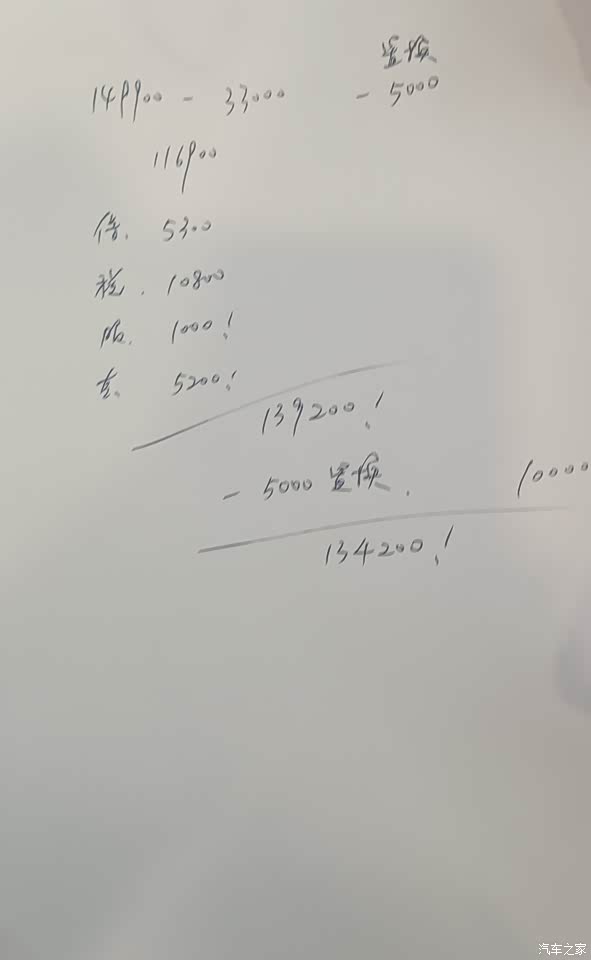 置换
149900 - 33000 - 5000
116900
保. 5300
税. 10800
服. 1000!
5200!
139200!
- 5000 置换. 10000
134200!
汽车之家